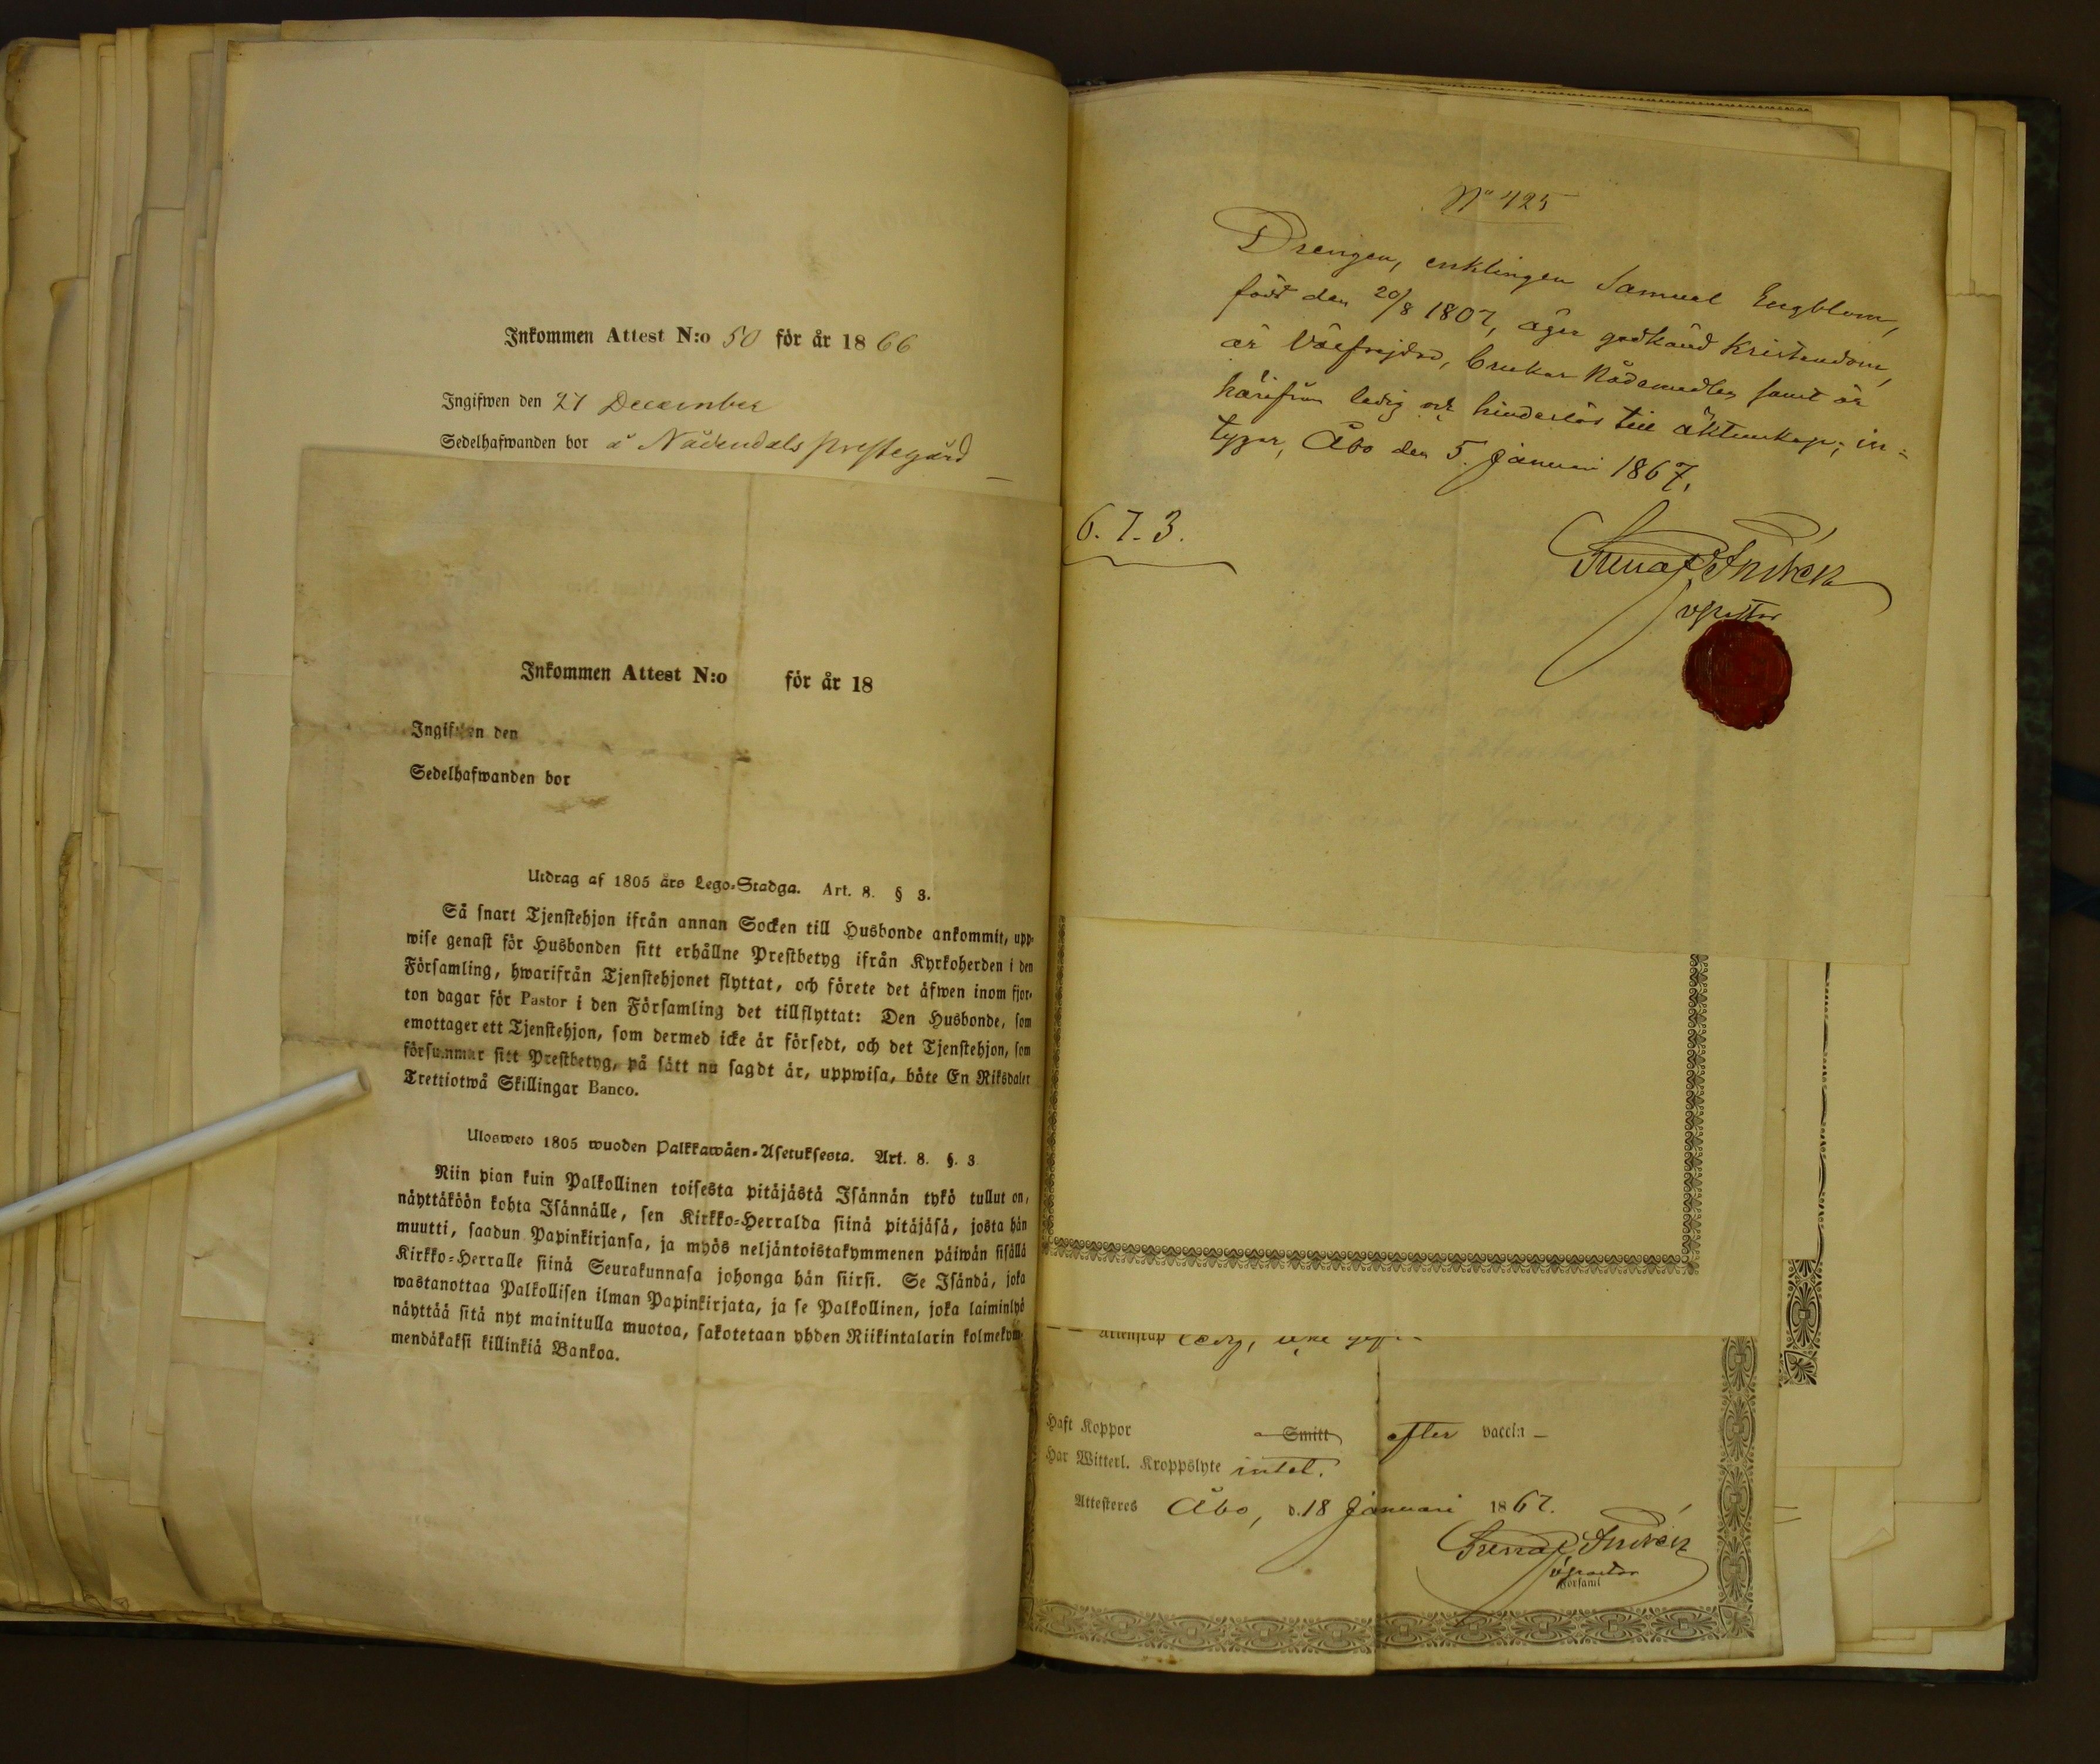 Inkommen Attest N:o 50 för år 1866
Ingifwen den 27 December
Sedelhafwanden bor å Nådendals prestegård
Inkommen Attest N:o för år 18
Ingifwen den
Sedelhafwanden bor
Utdrag af 1805 års Lego-Stadga. Art. 8. § 3.
Så snart Tjenstehjon ifrån annan Socken till Husbonde ankommit, upp-
wise genast för Husbonden sitt erhållne Prestbetyg ifrån Kyrkoherden i den
Församling, hwarifrån Tjenstehjonet flyttat, och förete det äfwen inom fjor-
ton dagar för Pastor i den Församling det tillflyttat: Den Husbonde, som
emottager ett Tjenstehjon, som dermed icke är försedt, och det Tjenstehjon, som
försummar sitt Prestbetyg, på sätt nu sagdt är, uppwisa, böte En Riksdaler
Trettiotwå Skillingar Banco.
Ulosweto 1805 wuoden Palkkawäen-Asetuksesta. Art. 8. §. 3
Niin pian kuin Palkollinen toisesta pitäjästä Isännän tykö tullut on,
näyttäköön kohta Isännälle, sen Kirkko-Herralda siinä pitäjäsä, josta hän
muutti, saadun Papinkirjansa, ja myös neljäntoistakymmenen päiwän sisällä
Kirkko-Herralle siinä Seurakunnasa johonga hän siirsi. Se Isändä, joka
wastanottaa Palkollisen ilman Papinkirjata, ja se Palkollinen, joka laiminlyö
näyttää sitä nyt mainitulla muotoa, sakotetaan yhden Riikintalarin kolmekym-
mendäkaksi killinkiä Bankoa.
No 425
Drengen, enklingen Samuel Engblom,
född den 20/8 1807, äger godkänd Kristendom,
är välfrejdad, brukar Nådemedlen samt är
härifrån ledig och hinderlös till äktenskap; in-
tygar, Åbo den 5. Januari 1867.
6. 7. 3.
v pastor
Äktenskap ledig, icke
Haft Koppor Smitt efter vaccin –
Har Witterl. Kroppslyte intet.
Attesteres Åbo, d. 18 Januari 1867.
v pastor
Församl